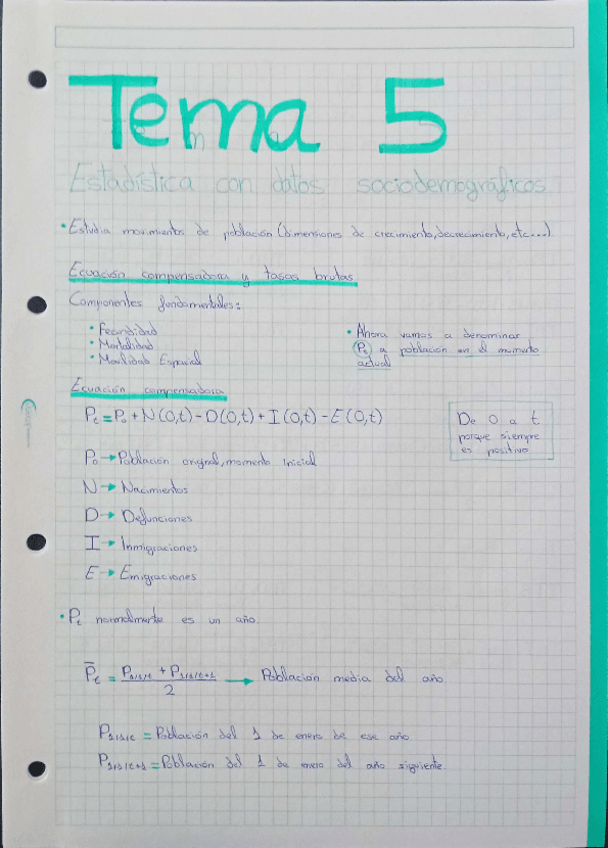 Tema 5
Estadística con datos sociodemográficos
• Estudia movimientos de población (dimensiones de crecimiento, decrecimiento, etc...)
Ecuación compensadora y tasas brutas
Componentes fundamentales:
• Fecundidad
• Mortalidad
• Movilidad Espacial
• Ahora vamos a denominar
Pt a población en el momento
actual
Ecuación compensadora
Pt = P0 + N(0,t) - D(0,t) + I(0,t) - E(0,t)
De 0 a t
porque siempre
es positivo
P0 → Población original, momento inicial
N → Nacimientos
D → Defunciones
I → Inmigraciones
E → Emigraciones
• Pt normalmente es un año
P̄t = (P1/1/t + P1/1/t+1) / 2 → Población media del año
P1/1/t = Población del 1 de enero de ese año
P1/1/t+1 = Población del 1 de enero del año siguiente